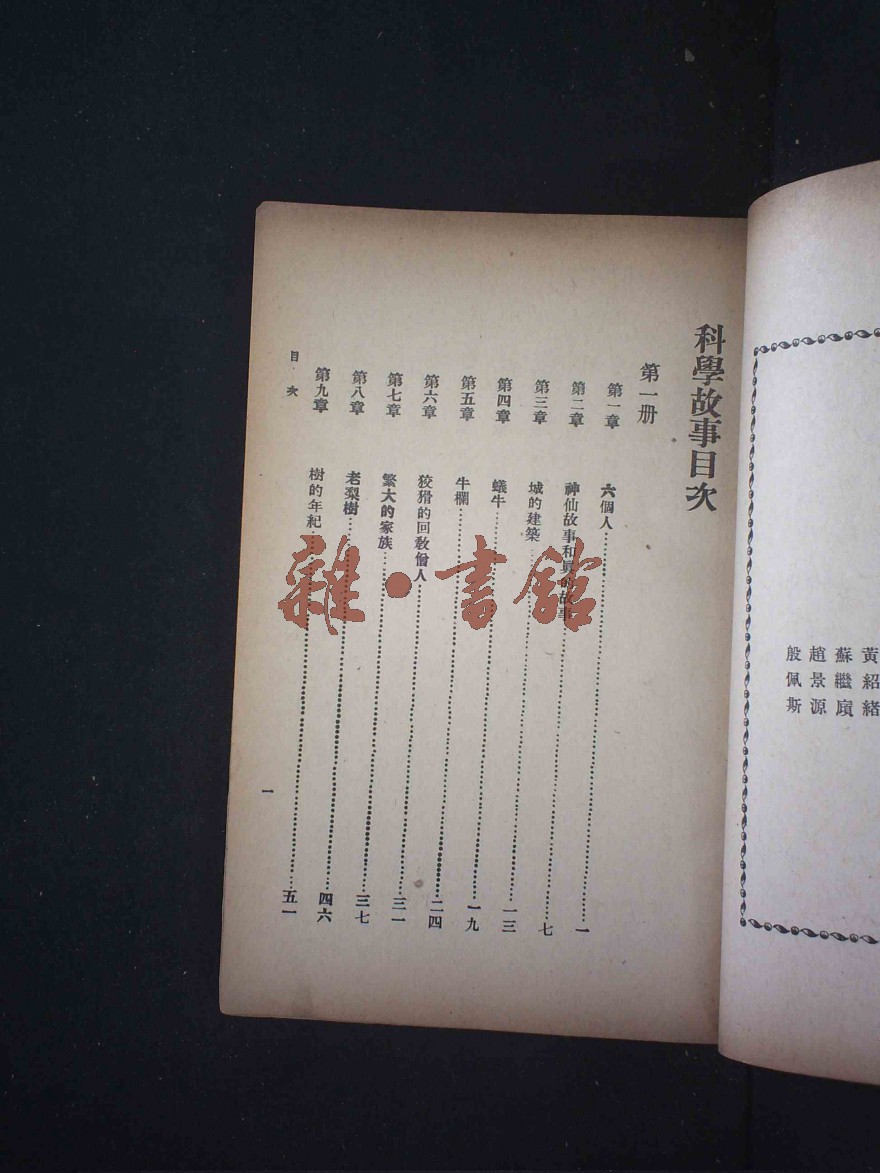 科學故事目次
第一册
第一章 六個人 一
第二章 神仙故事和眞的故事 七
第三章 城的建築 一三
第四章 蟻牛 一九
第五章 牛欄 二四
第六章 狡猾的回敎僧人 三一
第七章 繁大的家族 三七
第八章 老梨樹 四六
第九章 樹的年紀 五一
目次
一
雜·書館
黃紹緒
蘇繼廎
趙景源
殷佩斯